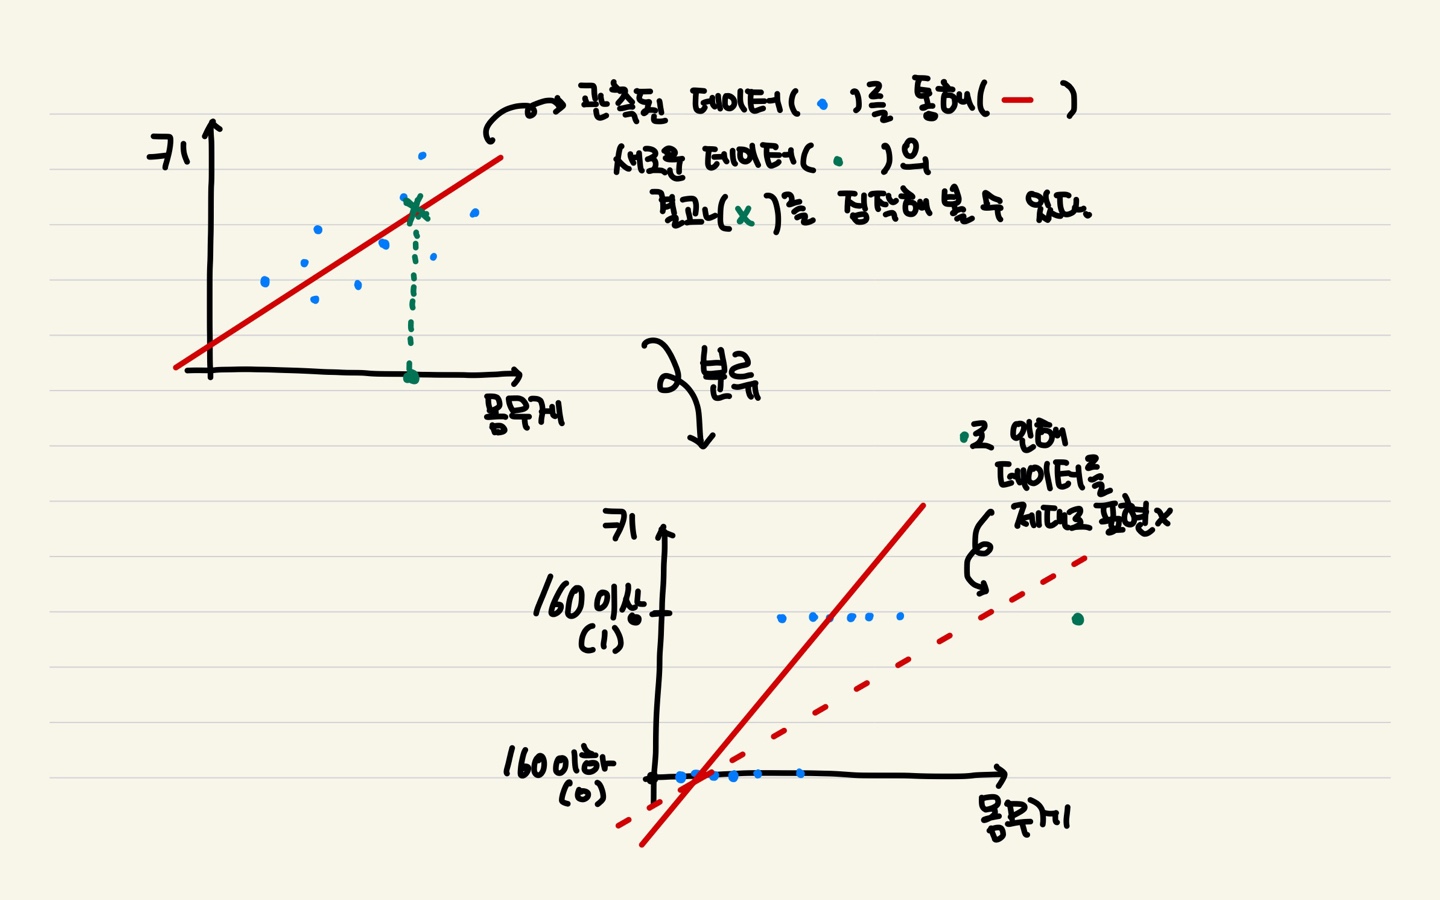 관측된 데이터( • )를 통해( — )
새로운 데이터( • )의
결과(x)를 짐작해 볼 수 있다.
키
몸무게
분류
•로 인해
데이터를
제대로 표현x
키
160 이상
(1)
160 이하
(0)
몸무게